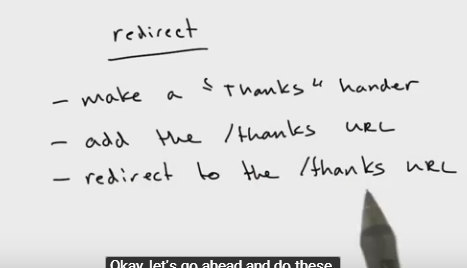 redirect
- make a "Thanks" hander
- add the /thanks URL
- redirect to the /thanks URL
Okay, let's go ahead and do these.